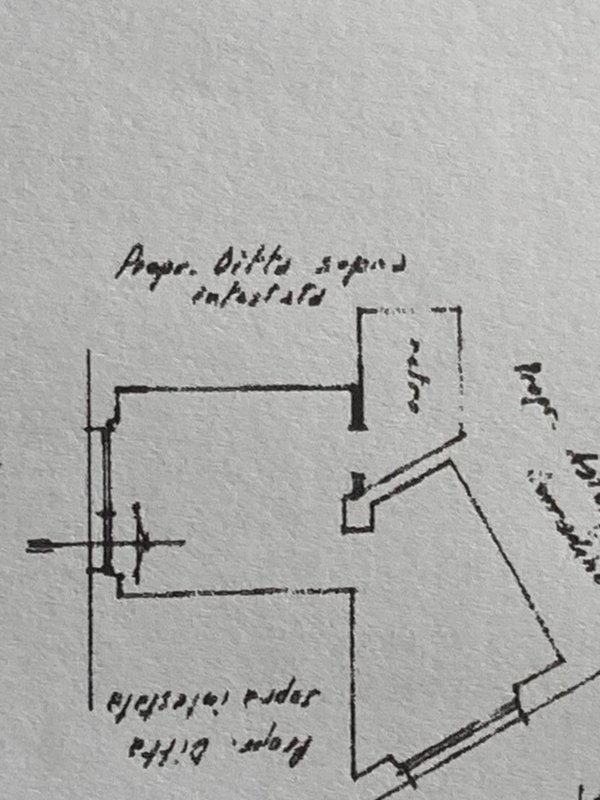 Propr. Ditta sopra
intestata
retro
propr.
Propr. Ditta
sopra intestata